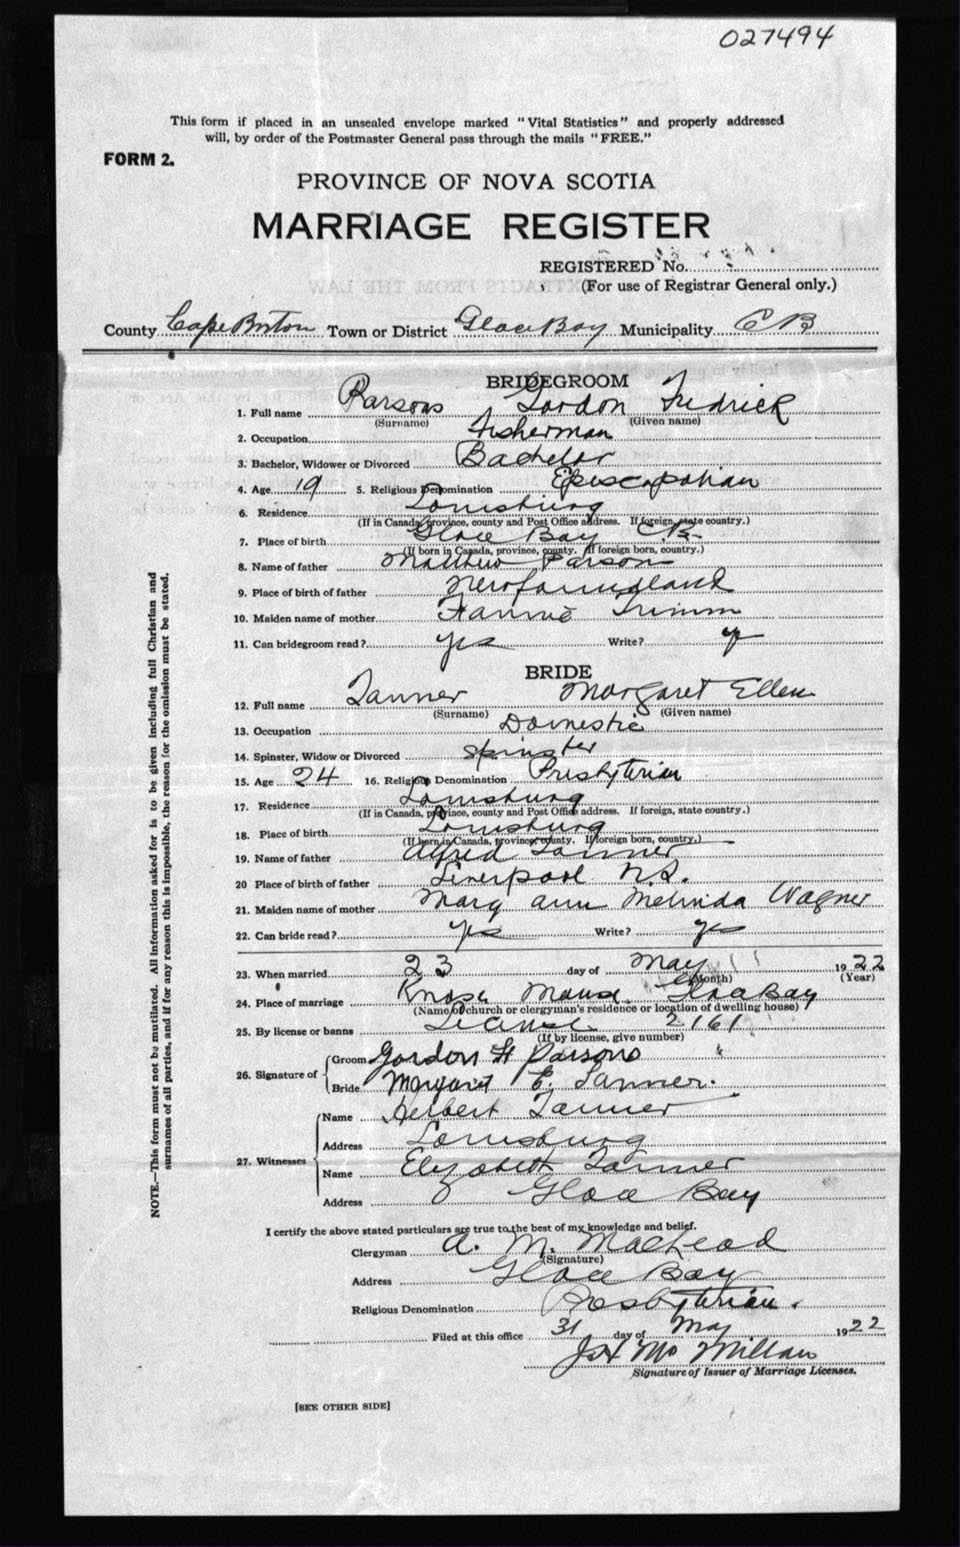 027494
This form if placed in an unsealed envelope marked "Vital Statistics" and properly addressed
will, by order of the Postmaster General pass through the mails "FREE."
FORM 2.
PROVINCE OF NOVA SCOTIA
MARRIAGE REGISTER
REGISTERED No.
(For use of Registrar General only.)
County Cape Breton Town or District Glace Bay Municipality C B
BRIDEGROOM
1. Full name Parsons Gordon Fredrick
(Surname) (Given name)
2. Occupation Fisherman
3. Bachelor, Widower or Divorced Bachelor
4. Age 19 5. Religious Denomination Episcopalian
6. Residence Louisburg
(If in Canada, province, county and Post Office address. If foreign, state country.)
7. Place of birth Glace Bay C.B.
(If born in Canada, province, county. If foreign born, country.)
8. Name of father Matthew Parsons
9. Place of birth of father Newfoundland
10. Maiden name of mother Fannie Trimm
11. Can bridegroom read? yes Write? y
BRIDE
12. Full name Tanner Margaret Ellen
(Surname) (Given name)
13. Occupation Domestic
14. Spinster, Widow or Divorced Spinster
15. Age 24 16. Religious Denomination Presbyterian
17. Residence Louisburg
(If in Canada, province, county and Post Office address. If foreign, state country.)
18. Place of birth Louisburg
(If born in Canada, province, county. If foreign born, country.)
19. Name of father Alfred Tanner
20 Place of birth of father Liverpool N.S.
21. Maiden name of mother Mary Ann Melinda Wagner
22. Can bride read? yes Write? yes
23. When married 23 day of May 1922
(Month) (Year)
24. Place of marriage Knox Manse Glace Bay
(Name of church or clergyman's residence or location of dwelling house)
25. By license or banns License 2161
(If by license, give number)
26. Signature of Groom Gordon F Parsons
Bride Margaret E. Tanner.
27. Witnesses Name Herbert Tanner
Address Louisburg
Name Elizabeth Tanner
Address Glace Bay
I certify the above stated particulars are true to the best of my knowledge and belief.
Clergyman A. M. MacLeod
(Signature)
Address Glace Bay
Religious Denomination Presbyterian.
Filed at this office 31 day of May 1922
McMillan
Signature of Issuer of Marriage Licenses.
[SEE OTHER SIDE]
NOTE.—This form must not be mutilated. All information asked for is to be given including full Christian and
surnames of all parties, and if for any reason this is impossible, the reason for the omission must be stated.